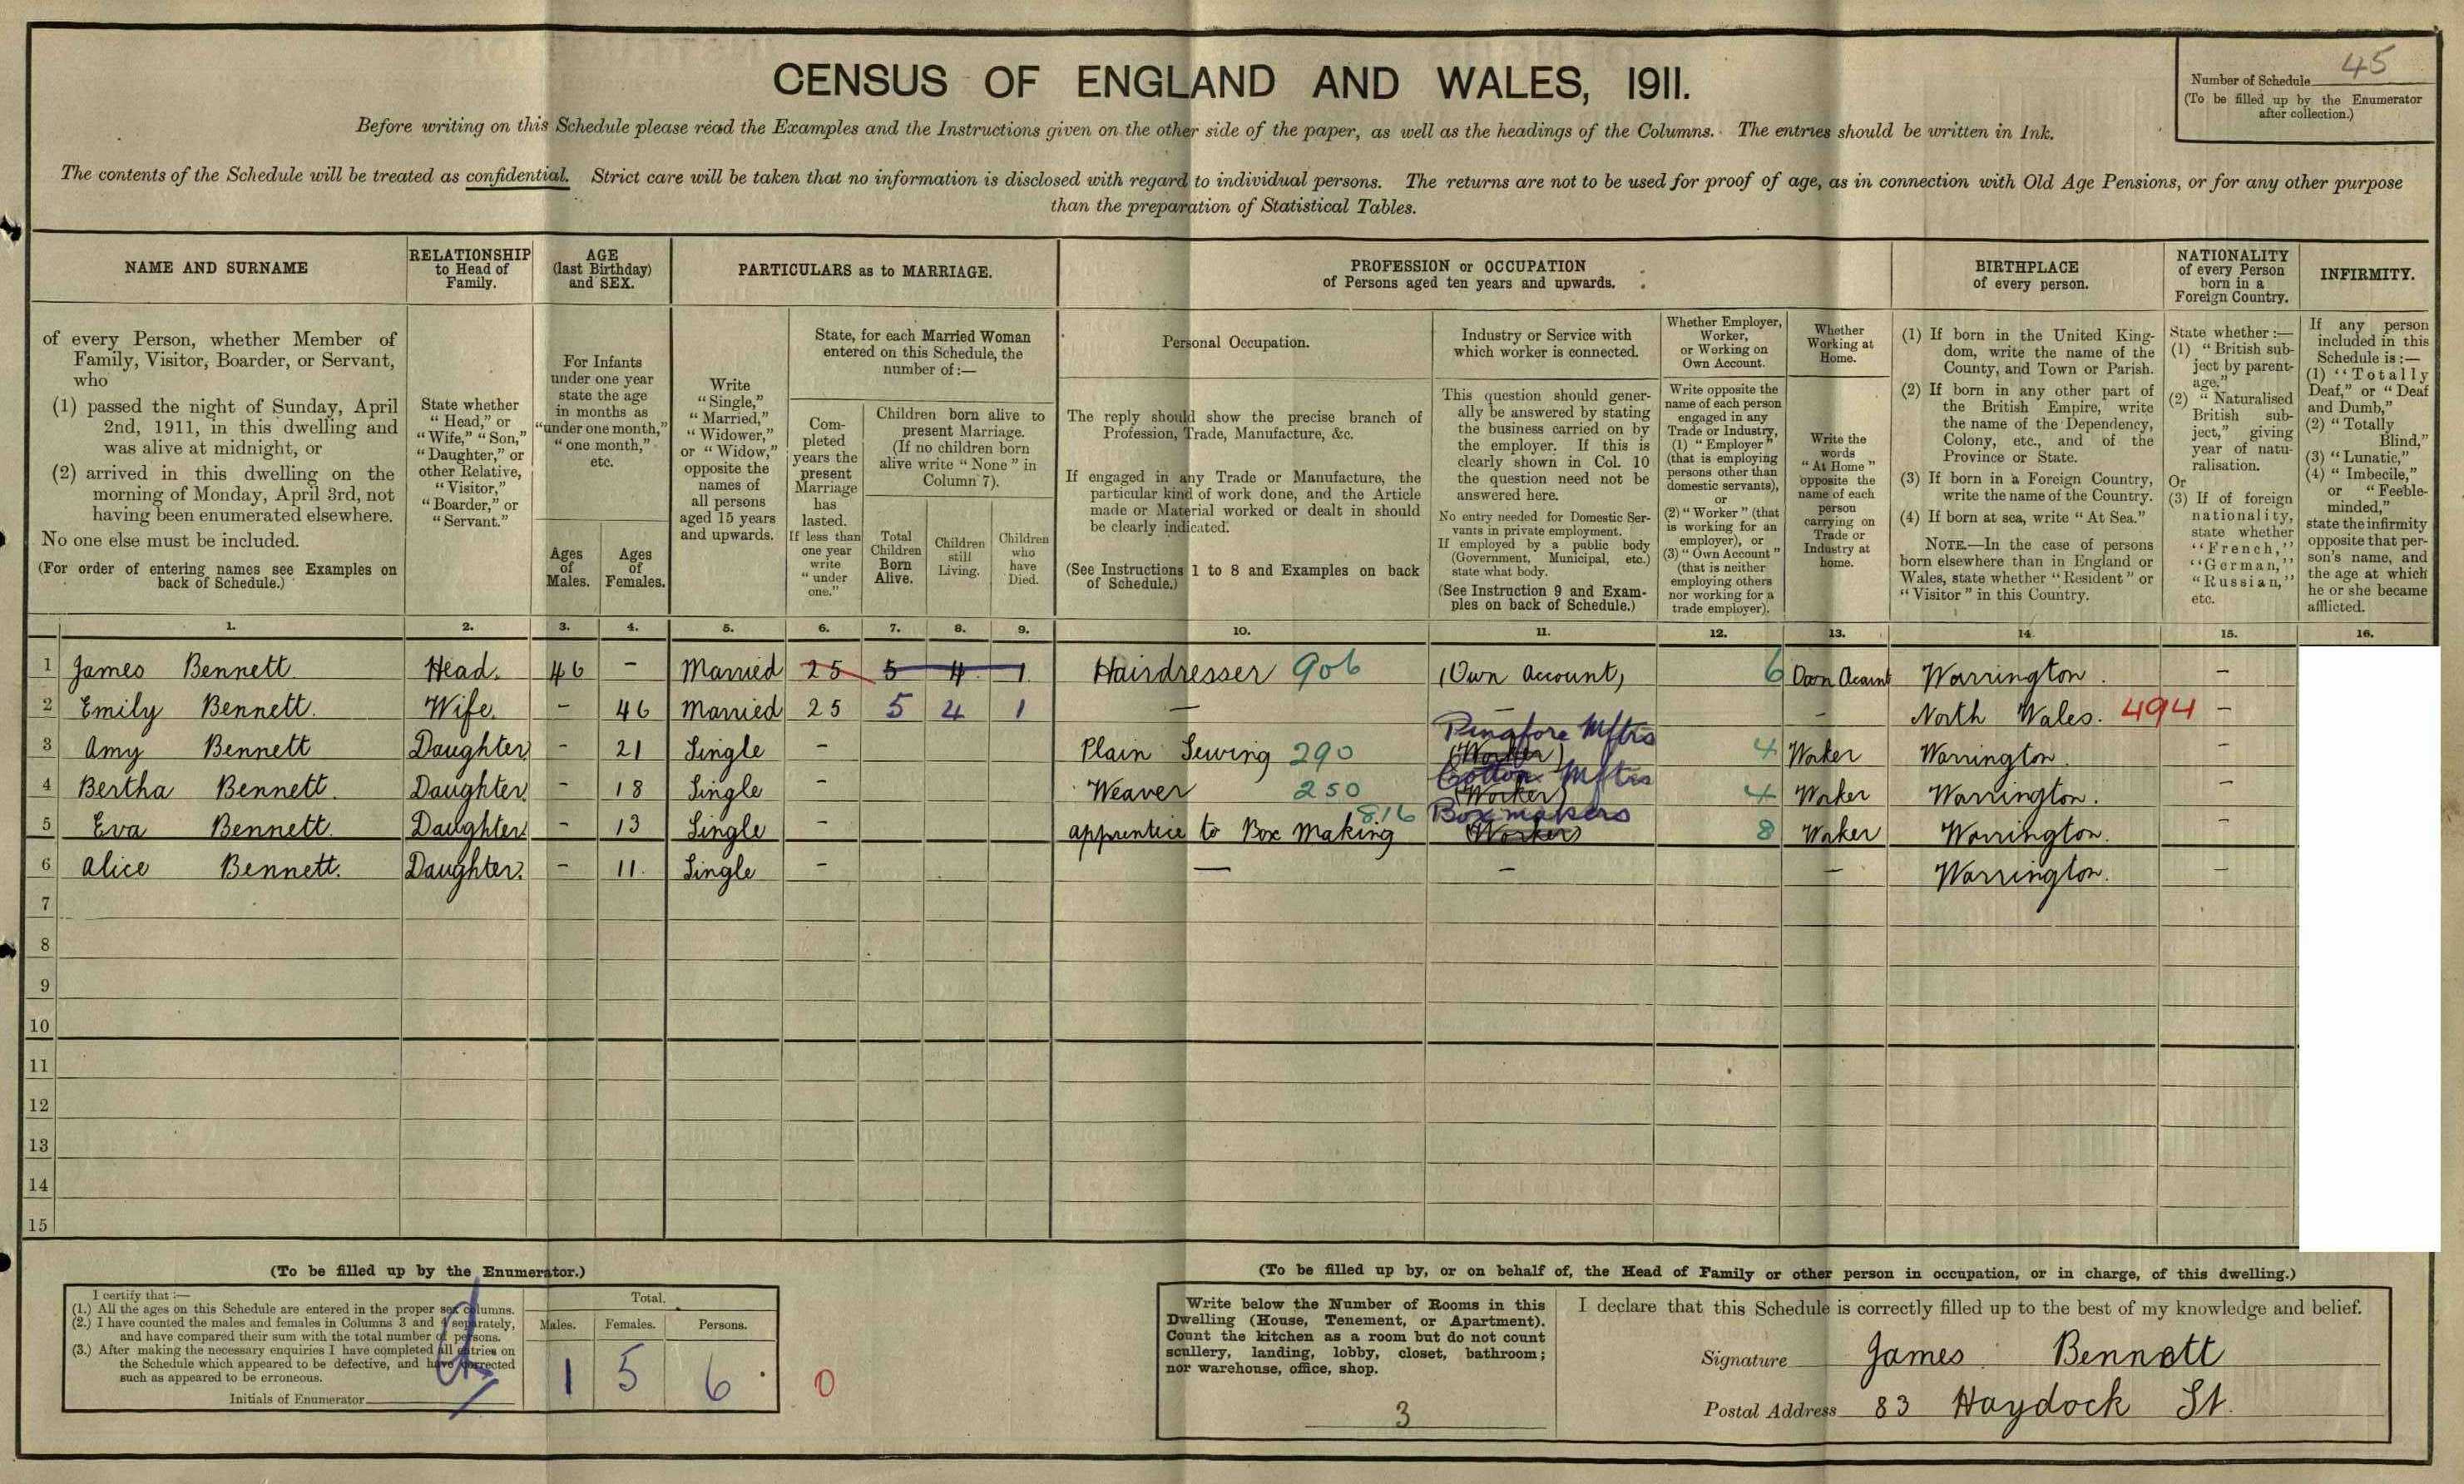 CENSUS OF ENGLAND AND WALES, 1911.
Number of Schedule 45
(To be filled up by the Enumerator
after collection.)
Before writing on this Schedule please read the Examples and the Instructions given on the other side of the paper, as well as the headings of the Columns. The entries should be written in Ink.
The contents of the Schedule will be treated as confidential. Strict care will be taken that no information is disclosed with regard to individual persons. The returns are not to be used for proof of age, as in connection with Old Age Pensions, or for any other purpose
than the preparation of Statistical Tables.
NAME AND SURNAME
of every Person, whether Member of
Family, Visitor, Boarder, or Servant,
who
(1) passed the night of Sunday, April
2nd, 1911, in this dwelling and
was alive at midnight, or
(2) arrived in this dwelling on the
morning of Monday, April 3rd, not
having been enumerated elsewhere.
No one else must be included.
(For order of entering names see Examples on
back of Schedule.)
RELATIONSHIP
to Head of
Family.
State whether
"Head," or
"Wife," "Son,"
"Daughter," or
other Relative,
"Visitor,"
"Boarder," or
"Servant."
AGE
(last Birthday)
and SEX.
For Infants
under one year
state the age
in months as
"under one month,"
"one month,"
etc.
Ages
of
Males.
Ages
of
Females.
PARTICULARS as to MARRIAGE.
Write
"Single,"
"Married,"
"Widower,"
or "Widow,"
opposite the
names of
all persons
aged 15 years
and upwards.
State, for each Married Woman
entered on this Schedule, the
number of:—
Com-
pleted
years the
present
Marriage
has
lasted.
If less than
one year
write
"under
one."
Children born alive to
present Marriage.
(If no children born
alive write "None" in
Column 7).
Total
Children
Born
Alive.
Children
still
Living.
Children
who
have
Died.
PROFESSION or OCCUPATION
of Persons aged ten years and upwards.
Personal Occupation.
The reply should show the precise branch of
Profession, Trade, Manufacture, &c.
If engaged in any Trade or Manufacture, the
particular kind of work done, and the Article
made or Material worked or dealt in should
be clearly indicated.
(See Instructions 1 to 8 and Examples on back
of Schedule.)
Industry or Service with
which worker is connected.
This question should gener-
ally be answered by stating
the business carried on by
the employer. If this is
clearly shown in Col. 10
the question need not be
answered here.
No entry needed for Domestic Ser-
vants in private employment.
If employed by a public body
(Government, Municipal, etc.)
state what body.
(See Instruction 9 and Exam-
ples on back of Schedule.)
Whether Employer,
Worker,
or Working on
Own Account.
Write opposite the
name of each person
engaged in any
Trade or Industry,
(1) "Employer"
(that is employing
persons other than
domestic servants),
or
(2) "Worker" (that
is working for an
employer), or
(3) "Own Account"
(that is neither
employing others
nor working for a
trade employer).
Whether
Working at
Home.
Write the
words
"At Home"
opposite the
name of each
person
carrying on
Trade or
Industry at
home.
BIRTHPLACE
of every person.
(1) If born in the United King-
dom, write the name of the
County, and Town or Parish.
(2) If born in any other part of
the British Empire, write
the name of the Dependency,
Colony, etc., and of the
Province or State.
(3) If born in a Foreign Country,
write the name of the Country.
(4) If born at sea, write "At Sea."
NOTE.—In the case of persons
born elsewhere than in England or
Wales, state whether "Resident" or
"Visitor" in this Country.
NATIONALITY
of every Person
born in a
Foreign Country.
State whether:—
(1) "British sub-
ject by parent-
age."
(2) "Naturalised
British sub-
ject," giving
year of natu-
ralisation.
Or
(3) If of foreign
nationality,
state whether
"French,"
"German,"
"Russian,"
etc.
INFIRMITY.
If any person
included in this
Schedule is:—
(1) "Totally
Deaf," or "Deaf
and Dumb,"
(2) "Totally
Blind,"
(3) "Lunatic,"
(4) "Imbecile,"
or "Feeble-
minded,"
state the infirmity
opposite that per-
son's name, and
the age at which
he or she became
afflicted.
1. 2. 3. 4. 5. 6. 7. 8. 9. 10. 11. 12. 13. 14. 15. 16.
1 James Bennett Head. 46 – Married 25 5 4 1 Hairdresser 906 (Own Account) 6 Own Acount Warrington. –
2 Emily Bennett. Wife. – 46 Married 25 5 4 1 — – – North Wales. 494 –
Pinafore Mftrs
3 Amy Bennett Daughter – 21 Single – Plain Sewing 290 (Worker) 4 Worker Warrington. –
Cotton Mftrs
4 Bertha Bennett. Daughter. – 18 Single – Weaver 250 (Worker) 4 Worker Warrington. –
816 Box makers
5 Eva Bennett. Daughter – 13 Single – apprentice to Box Making (Worker) 8 Worker Warrington. –
6 Alice Bennett. Daughter. – 11. Single – — – – Warrington. –
7
8
9
10
11
12
13
14
15
(To be filled up by the Enumerator.)
I certify that:—
(1.) All the ages on this Schedule are entered in the proper sex columns.
(2.) I have counted the males and females in Columns 3 and 4 separately,
and have compared their sum with the total number of persons.
(3.) After making the necessary enquiries I have completed all entries on
the Schedule which appeared to be defective, and have corrected
such as appeared to be erroneous.
Initials of Enumerator
Total.
Males. Females. Persons.
1 5 6 0
(To be filled up by, or on behalf of, the Head of Family or other person in occupation, or in charge, of this dwelling.)
Write below the Number of Rooms in this
Dwelling (House, Tenement, or Apartment).
Count the kitchen as a room but do not count
scullery, landing, lobby, closet, bathroom;
nor warehouse, office, shop.
3
I declare that this Schedule is correctly filled up to the best of my knowledge and belief.
Signature James Bennett
Postal Address 83 Haydock St.